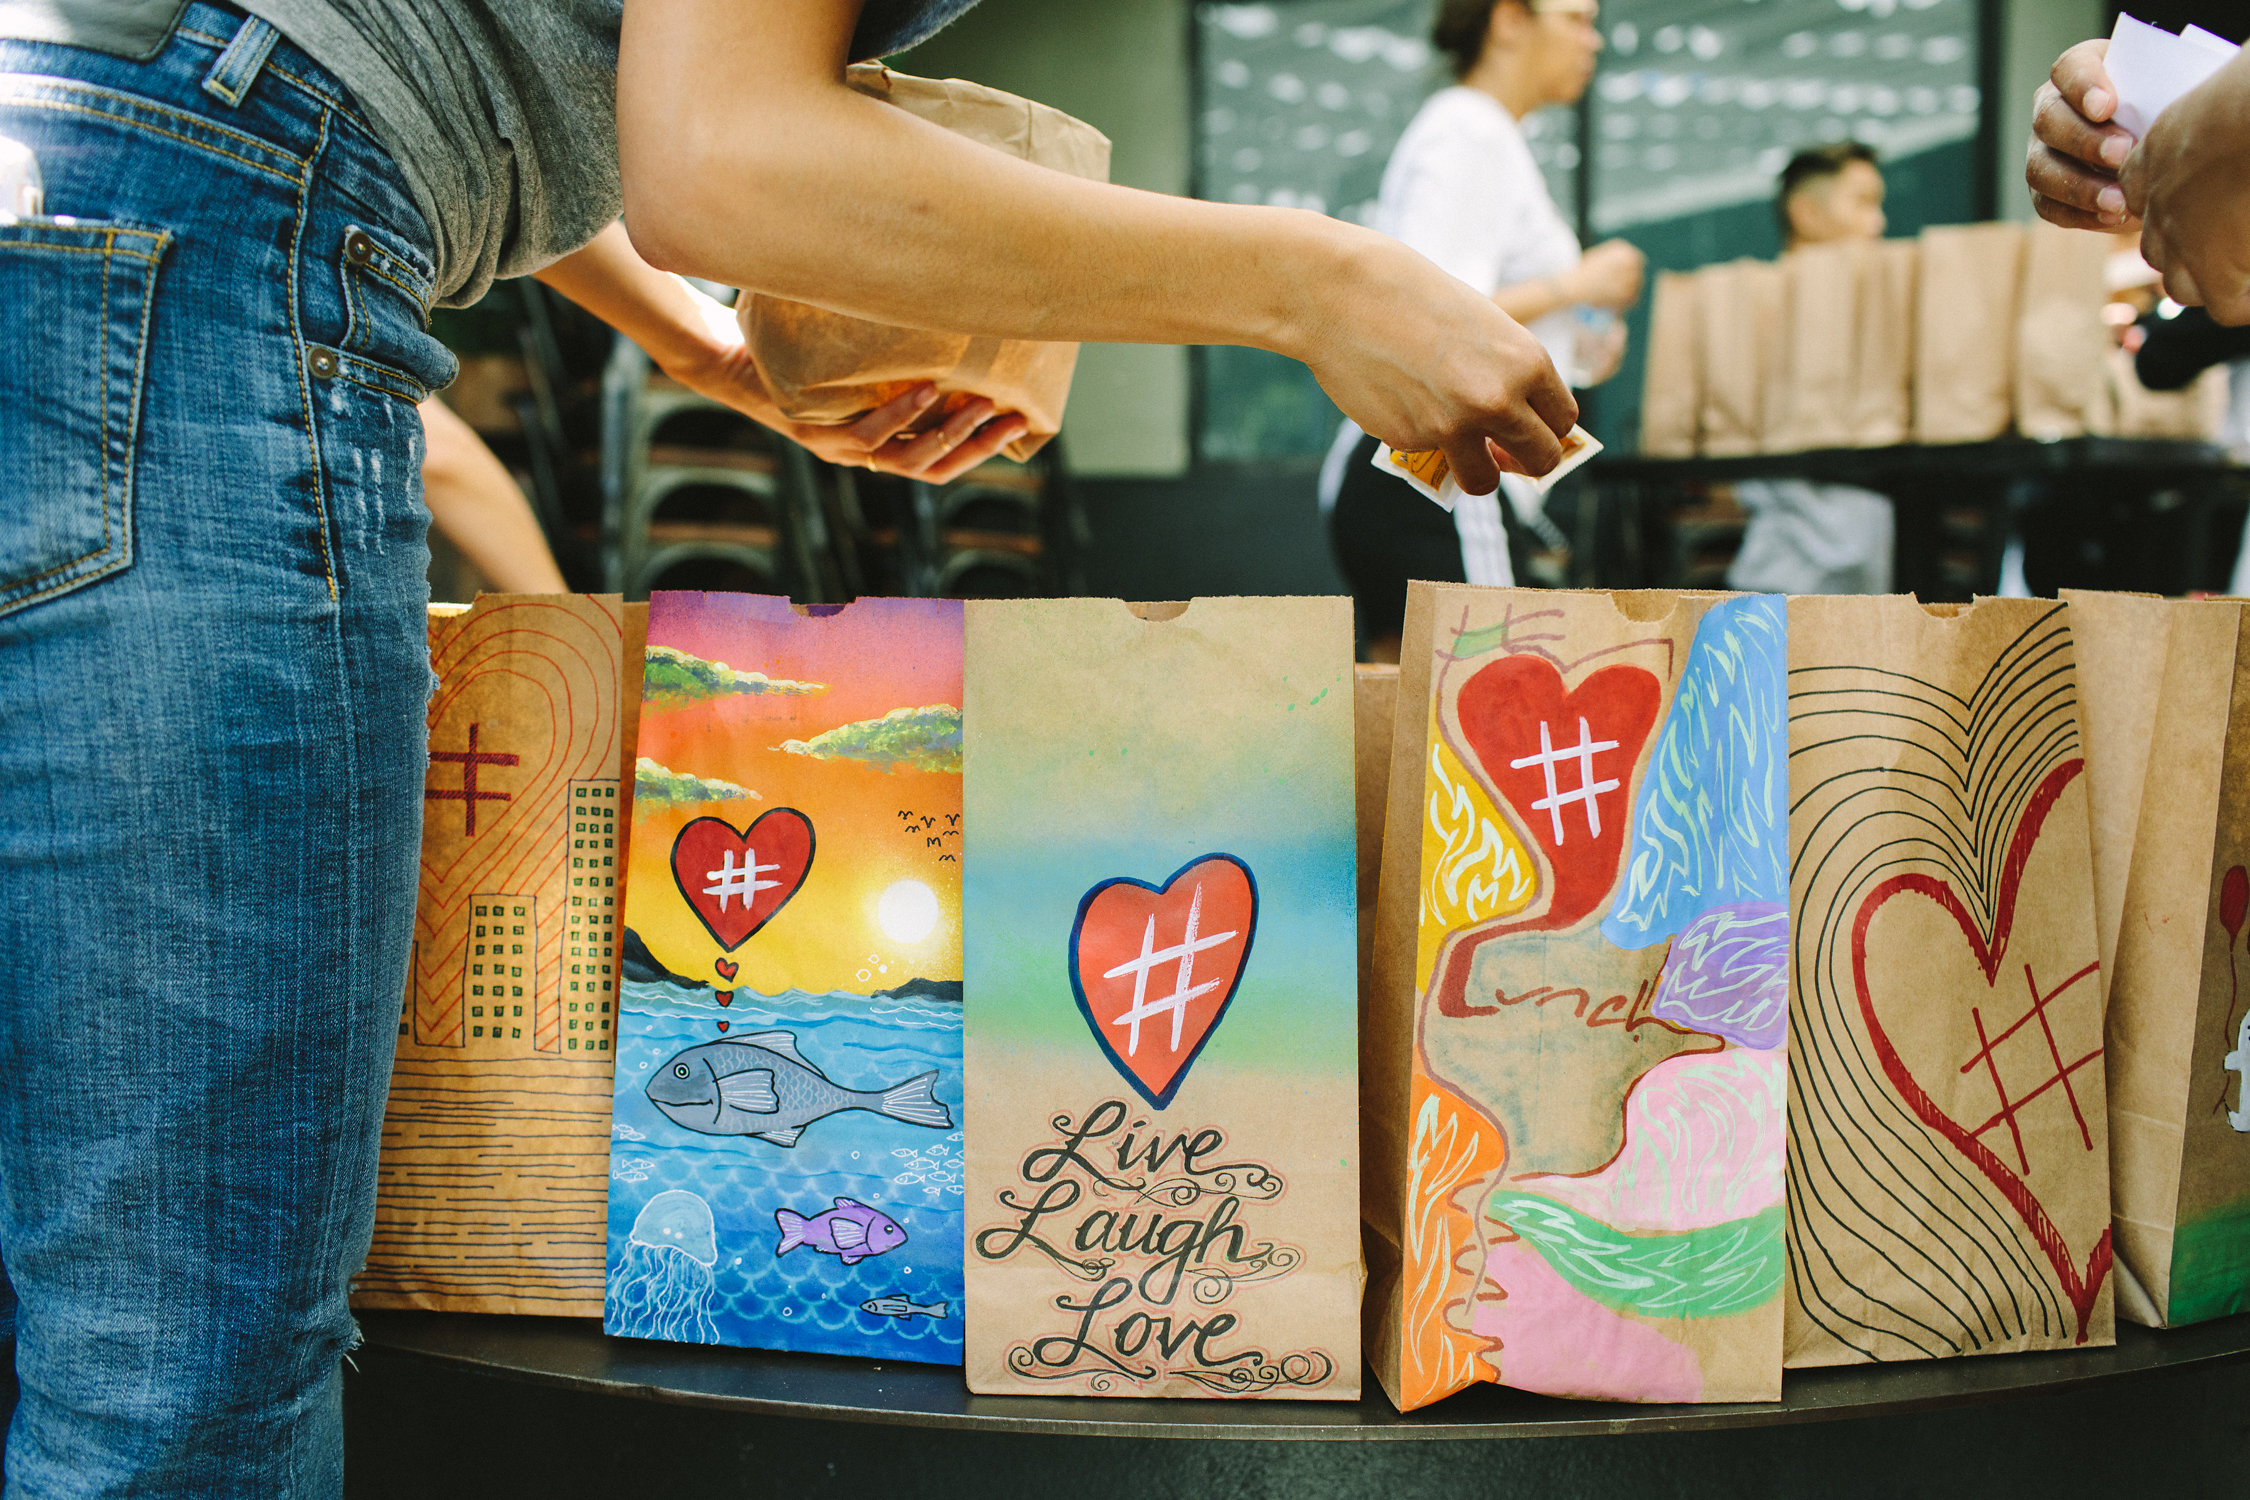 #
#
#
#
#
Live
Laugh
Love
Lunch